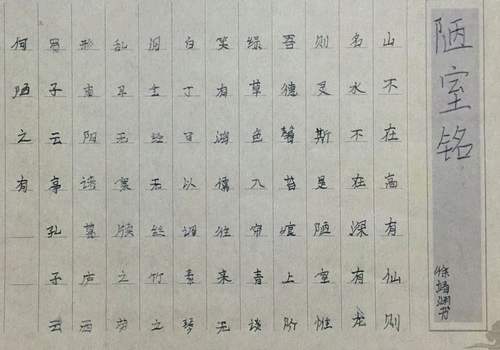 陋室铭
山不在高有仙则
名水不在深有龙
则灵斯是陋室惟
吾德馨苔痕上阶
绿草色入帘青谈
笑有鸿儒往来无
白丁可以调素琴
阅金经无丝竹之
乱耳无案牍之劳
形南阳诸葛庐西
蜀子云亭孔子云
何陋之有